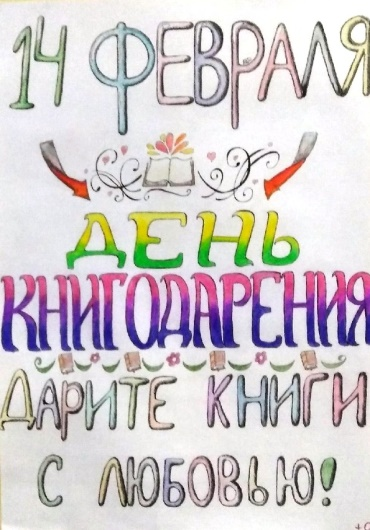 14 ФЕВРАЛЯ
ДЕНЬ
КНИГОДАРЕНИЯ
ДАРИТЕ КНИГИ
С ЛЮБОВЬЮ!